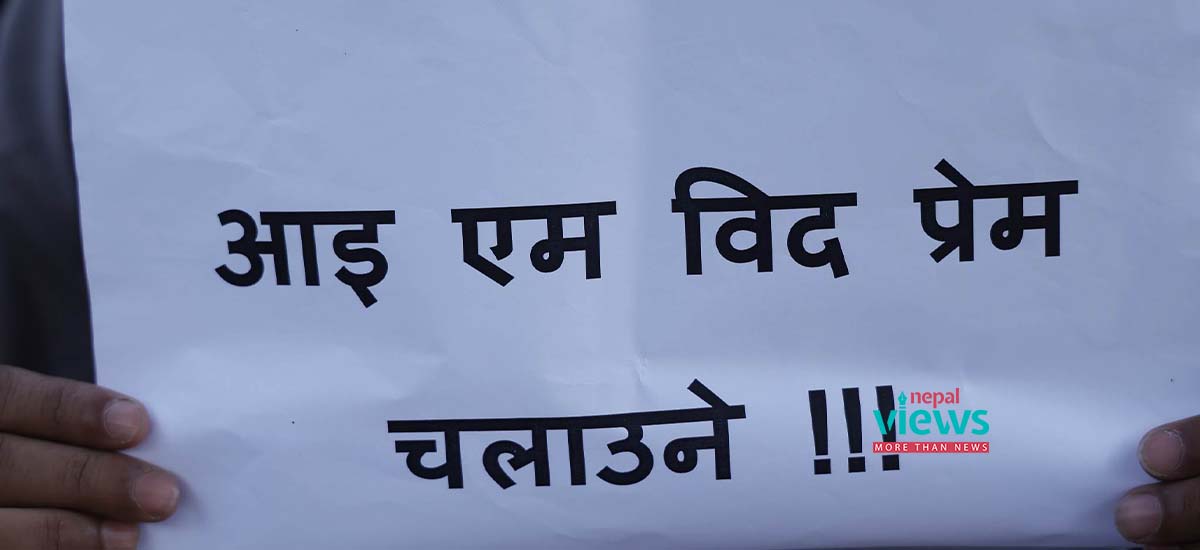 आइ एम विद प्रेम
चलाउने !!!
nepal
views
MORE THAN NEWS